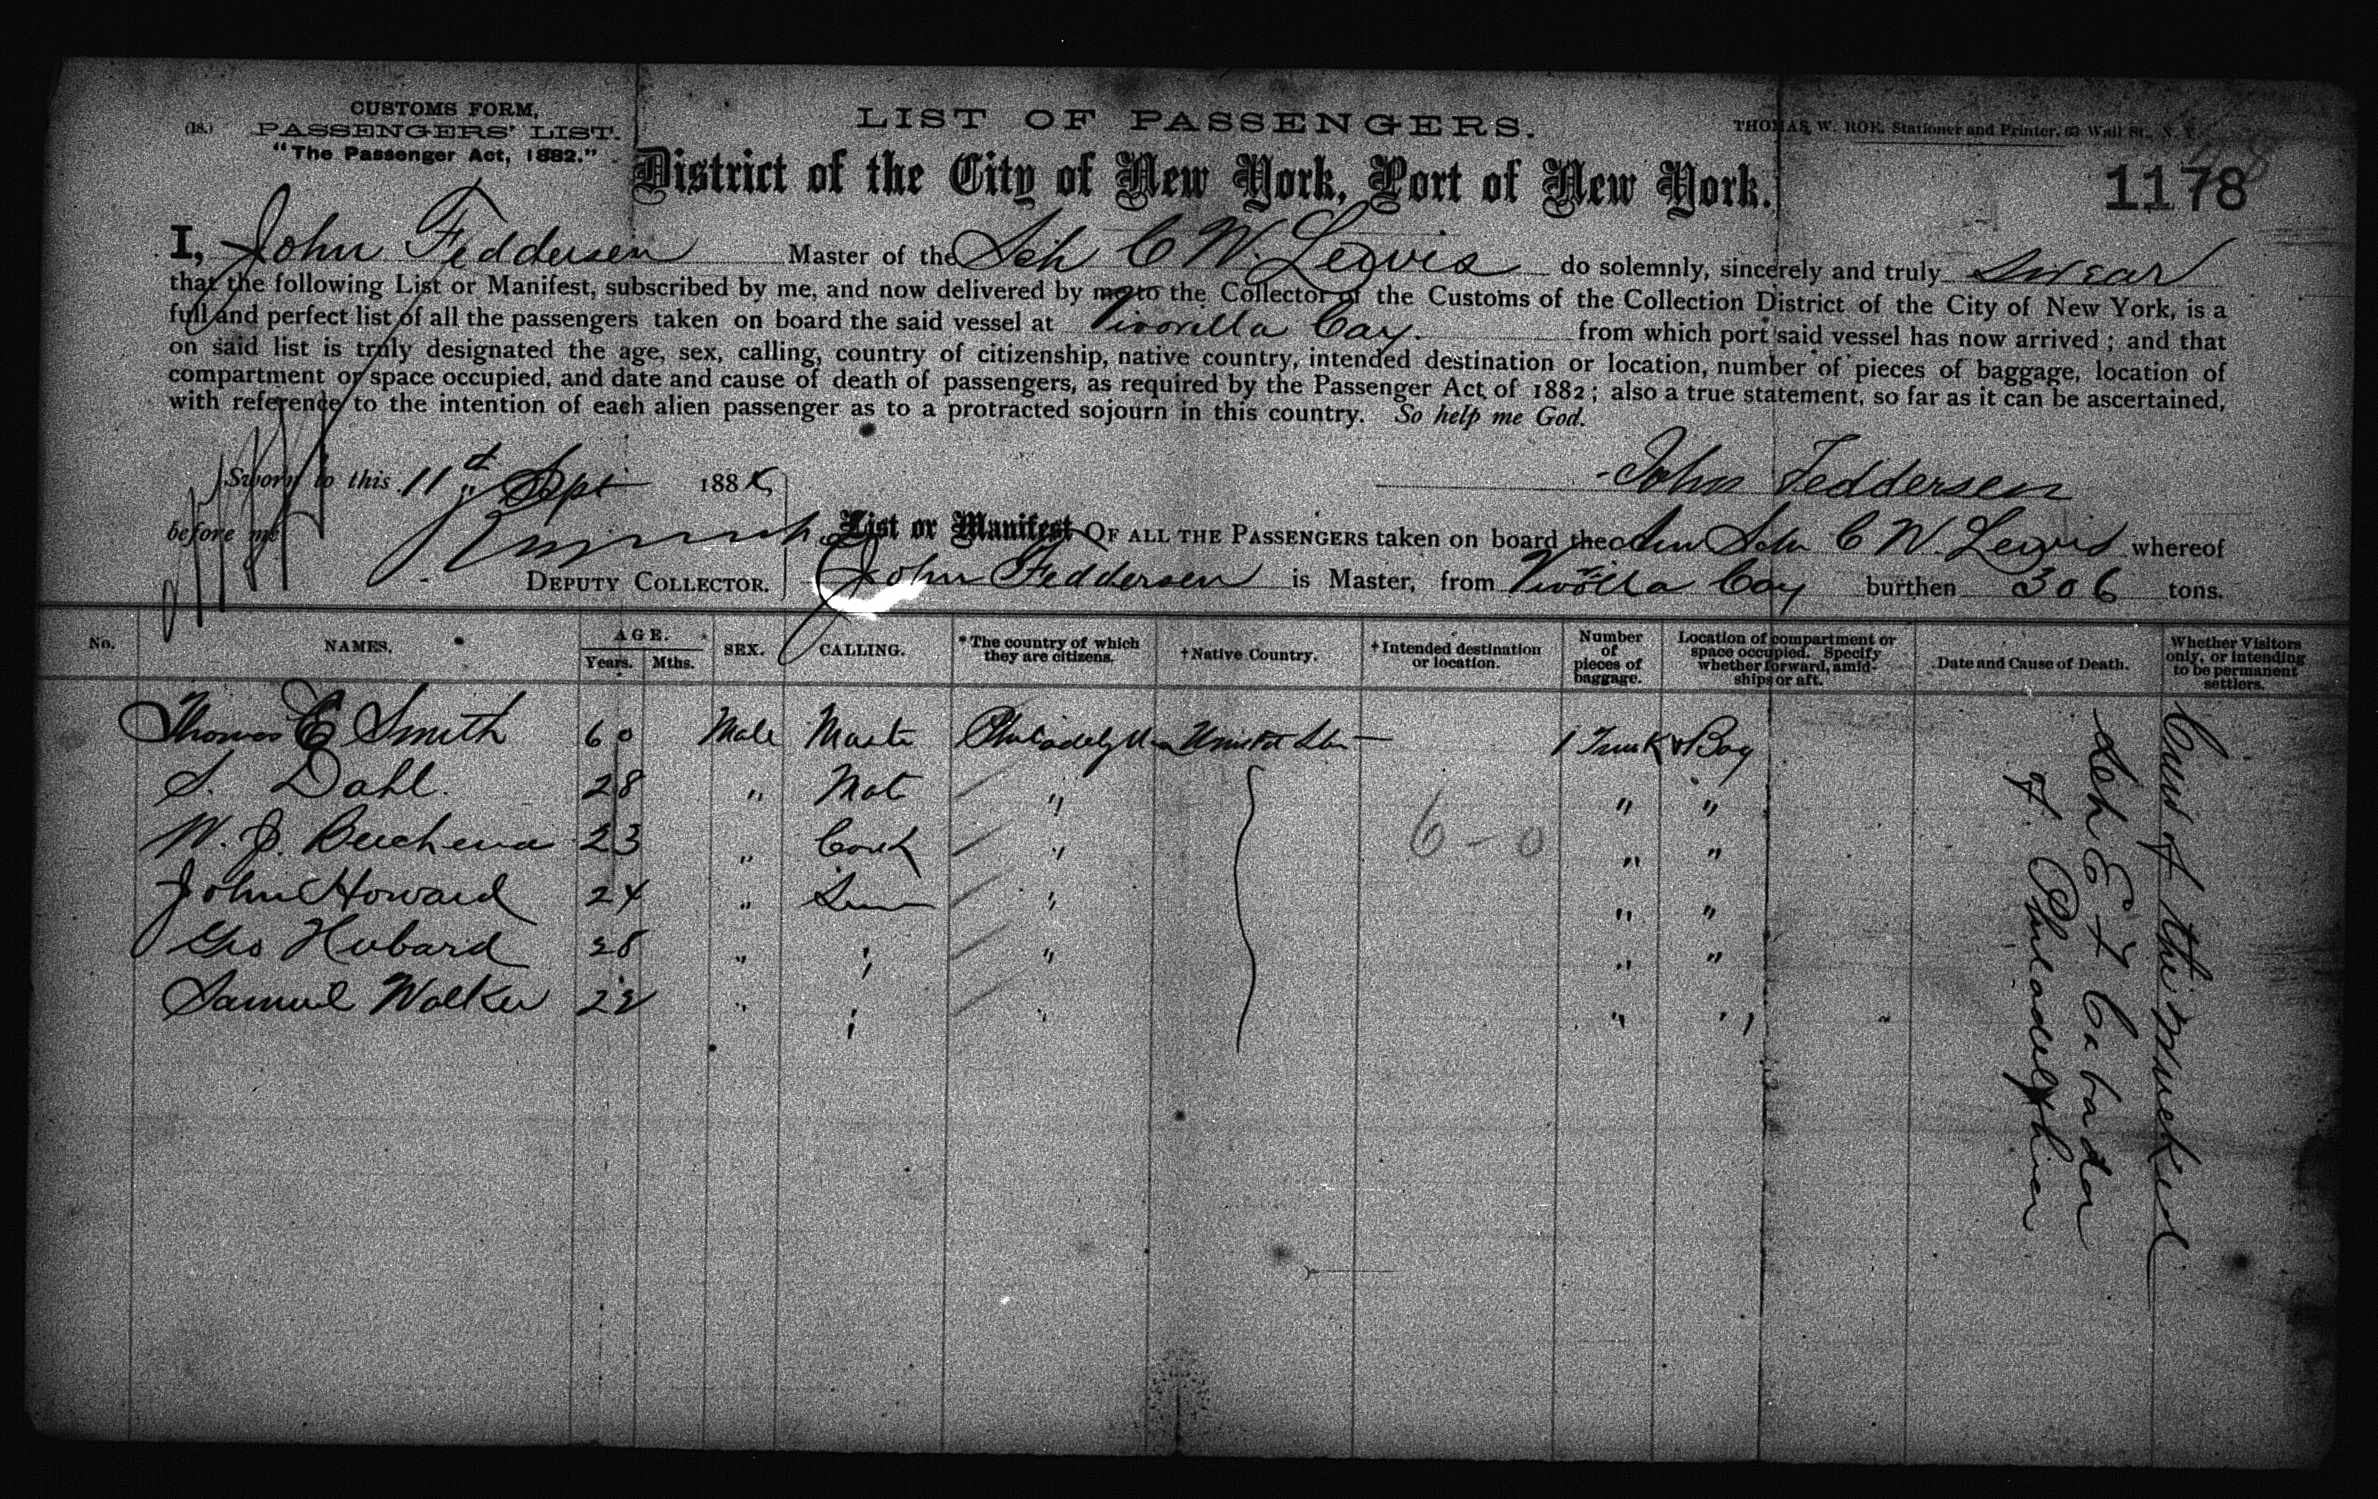 (18.)
CUSTOMS FORM,
PASSENGERS' LIST.
"The Passenger Act, 1882."
LIST OF PASSENGERS.
THOMAS W. ROE, Stationer and Printer, 63 Wall St., N. Y.
District of the City of New York, Port of New York.
1178
I, John Feddersen Master of the Sch C W. Lewis do solemnly, sincerely and truly swear
that the following List or Manifest, subscribed by me, and now delivered by me to the Collector of the Customs of the Collection District of the City of New York, is a
full and perfect list of all the passengers taken on board the said vessel at Vivorilla Cay. from which port said vessel has now arrived; and that
on said list is truly designated the age, sex, calling, country of citizenship, native country, intended destination or location, number of pieces of baggage, location of
compartment or space occupied, and date and cause of death of passengers, as required by the Passenger Act of 1882; also a true statement, so far as it can be ascertained,
with reference to the intention of each alien passenger as to a protracted sojourn in this country. So help me God.
Sworn to this 11th Sept 188
John Feddersen
before me
DEPUTY COLLECTOR.
List or Manifest OF ALL THE PASSENGERS taken on board the Am Schr C W. Lewis whereof
John Feddersen is Master, from Cay burthen 306 tons.
No. NAMES. AGE. Years. Mths. SEX. CALLING. *The country of which they are citizens. †Native Country. †Intended destination or location. Number of pieces of baggage. Location of compartment or space occupied. Specify whether forward, amidships or aft. Date and Cause of Death. Whether Visitors only, or intending to be permanent settlers.
Thomas E Smith 60 Male Master Philadelphia United Sta — 1 Trunk & Bag
S. Dahl. 28 " Mate " " "
W. J. 23 " Cook " " "
John Howard 24 " " " "
Geo Hubard 28 " " " " "
Samuel Walker 22 " " " " " "
6-0
Crew of the wrecked
Sch
of Philadelphia